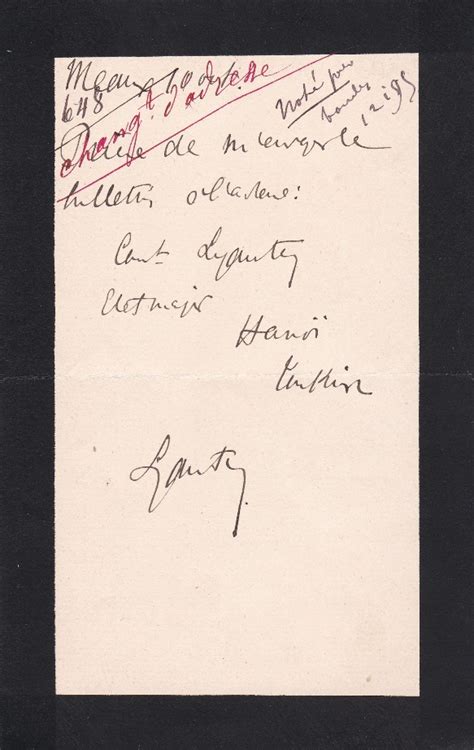 Meaux 10 oct.
648
Chang.t d'adresse
Noté pour
bandes
12 i 95
Prière de m'envoyer le
bulletin à l'adresse:
Comt Lyautey
Etat major
Hanoï
Tonkin
Lyautey